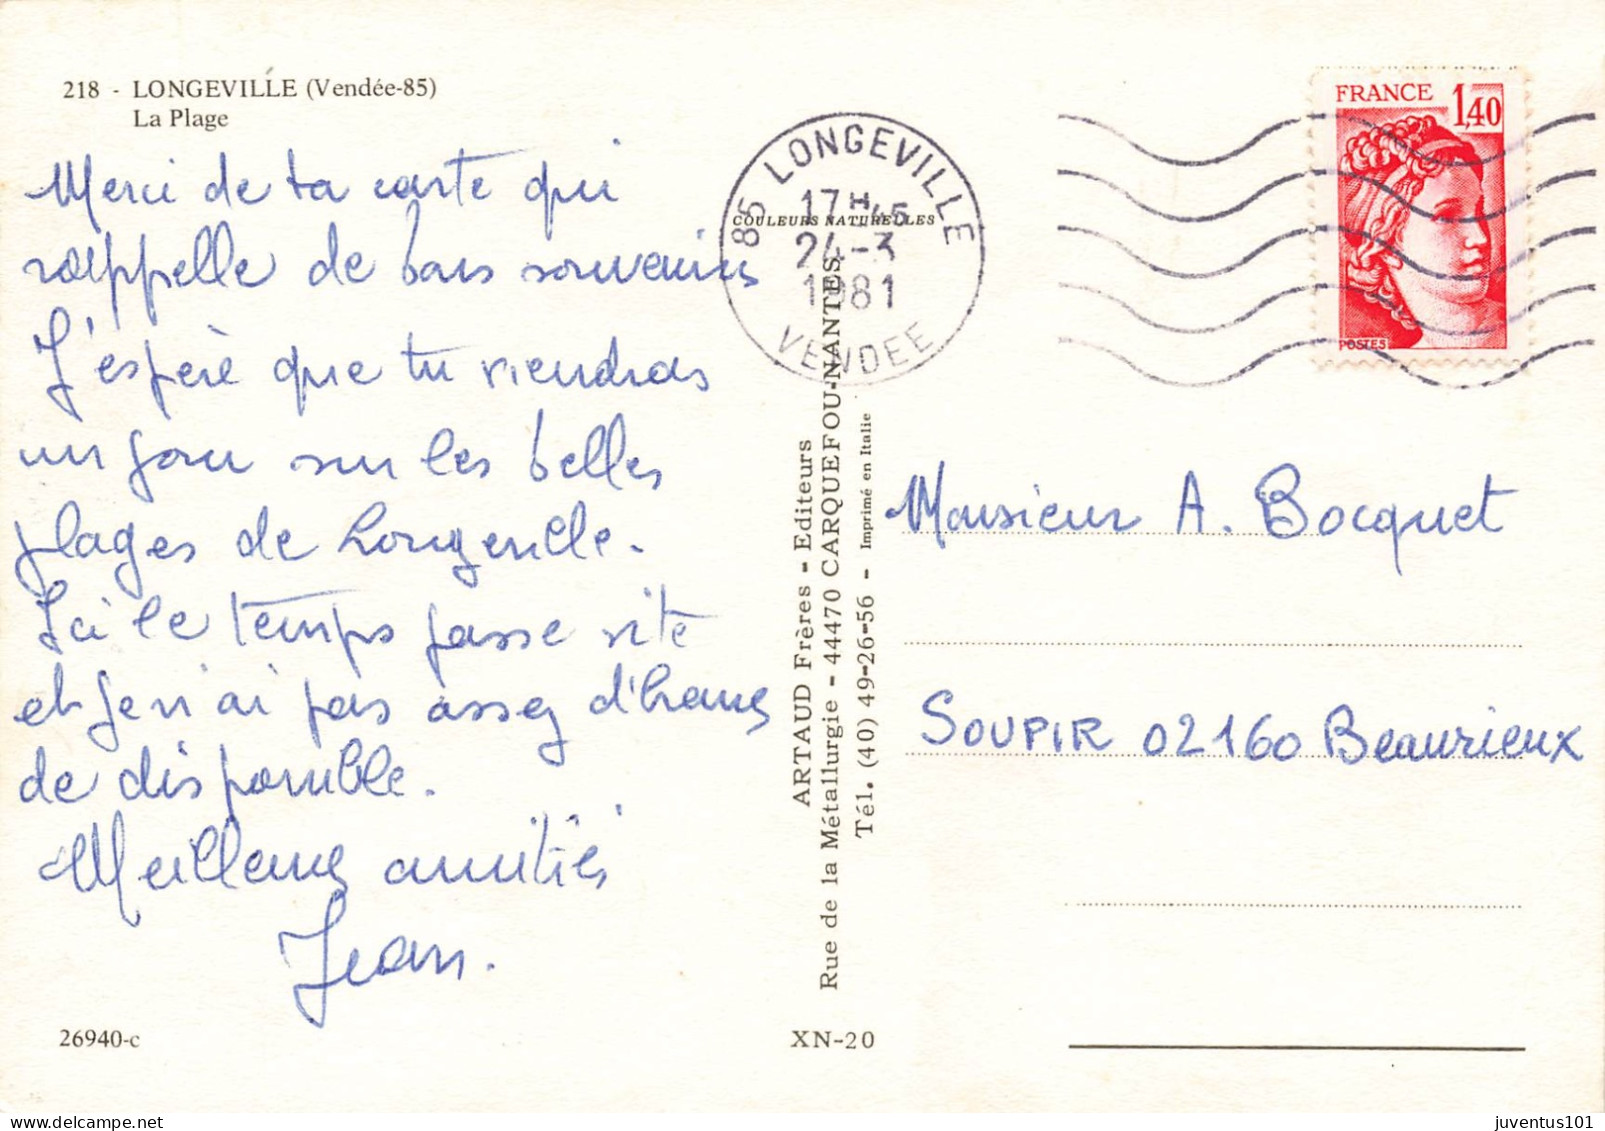 218 - LONGEVILLE (Vendée-85)
La Plage
Merci de ta carte qui
rappelle de bons souvenirs
J'espère que tu viendras
un jour sur les belles
plages de Longeville.
Ici le temps passe vite
et je n'ai pas assez d'heures
de disponible.
Meilleures amitiés
Jean.
26940-c
85 LONGEVILLE
17H45
24-3
1981
VENDEE
COULEURS NATURELLES
ARTAUD Frères - Editeurs
Rue de la Métallurgie - 44470 CARQUEFOU-NANTES
Tél. (40) 49-26-56 - Imprimé en Italie
XN-20
FRANCE 1,40
POSTES
Monsieur A. Bocquet
SOUPIR 02160 Beaurieux
juventus101